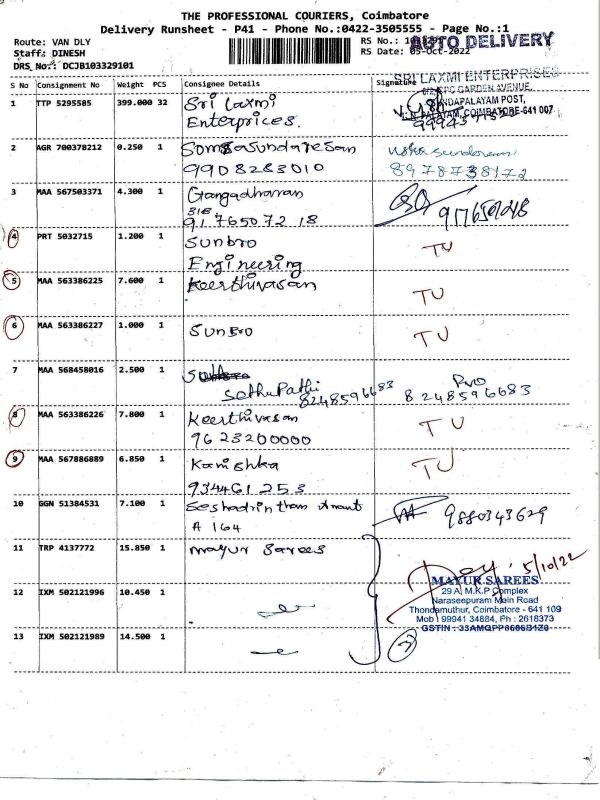 THE PROFESSIONAL COURIERS, Coimbatore
Delivery Runsheet - P41 - Phone No.:0422-3505555 - Page No.:1
Route: VAN DLY
RS No.:
AUTO DELIVERY
Staff: DINESH
RS Date: 05-Oct-2022
DRS No.: DCJB103329101
S No Consignment No Weight PCS Consignee Details Signature
SRI LAXMI ENTERPRISES
GARDEN AVENUE,
POST,
COIMBATORE-641 007
1 TTP 5295585 399.000 32 Sri Laxmi
Enterprices.
2 AGR 700378212 0.250 1 Somsasundaresan
9908283010
usha sundaram
8978738172
3 MAA 567503371 4.300 1 Gangadharan
318,
91 765072 18
4 PRT 5032715 1.200 1 Sunbro
Engineering
TU
5 MAA 563386225 7.600 1 Keerthivasan
TU
6 MAA 563386227 1.000 1 SUNBRO
TU
7 MAA 568458016 2.500 1
SethuPathi
8248596683
8248596683
8 MAA 563386226 7.800 1 Keerthivasan
9623200000
TU
9 MAA 567886889 6.850 1 Kanishka
934461253
TU
10 GGN 51384531 7.100 1 Seshadrinthan
A 164
9880343629
11 TRP 4137772 15.850 1 Mayur Sarees
5/10/22
12 IXM 502121996 10.450 1
MAYUR SAREES
29 A, M.K.P Complex
Naraseepuram Main Road
Thondamuthur, Coimbatore - 641 109
Mob : 99941 34884, Ph : 2618373
13 IXM 502121989 14.500 1
3